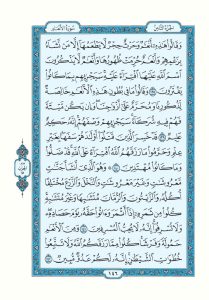 الجزء الثامن سورة الأنعام
وَقَالُوا۟ هَٰذِهِۦٓ أَنْعَٰمٌ وَحَرْثٌ حِجْرٌ لَّا يَطْعَمُهَآ إِلَّا مَن نَّشَآءُ
بِزَعْمِهِمْ وَأَنْعَٰمٌ حُرِّمَتْ ظُهُورُهَا وَأَنْعَٰمٌ لَّا يَذْكُرُونَ
ٱسْمَ ٱللَّهِ عَلَيْهَا ٱفْتِرَآءً عَلَيْهِ سَيَجْزِيهِم بِمَا كَانُوا۟
يَفْتَرُونَ ١٣٨ وَقَالُوا۟ مَا فِى بُطُونِ هَٰذِهِ ٱلْأَنْعَٰمِ خَالِصَةٌ
لِّذُكُورِنَا وَمُحَرَّمٌ عَلَىٰٓ أَزْوَٰجِنَا وَإِن يَكُن مَّيْتَةً
فَهُمْ فِيهِ شُرَكَآءُ سَيَجْزِيهِمْ وَصْفَهُمْ إِنَّهُۥ حَكِيمٌ
عَلِيمٌ ١٣٩ قَدْ خَسِرَ ٱلَّذِينَ قَتَلُوٓا۟ أَوْلَٰدَهُمْ سَفَهًۢا بِغَيْرِ
عِلْمٍ وَحَرَّمُوا۟ مَا رَزَقَهُمُ ٱللَّهُ ٱفْتِرَآءً عَلَى ٱللَّهِ قَدْ ضَلُّوا۟
وَمَا كَانُوا۟ مُهْتَدِينَ ١٤٠ وَهُوَ ٱلَّذِىٓ أَنشَأَ جَنَّٰتٍ
مَّعْرُوشَٰتٍ وَغَيْرَ مَعْرُوشَٰتٍ وَٱلنَّخْلَ وَٱلزَّرْعَ مُخْتَلِفًا
أُكُلُهُۥ وَٱلزَّيْتُونَ وَٱلرُّمَّانَ مُتَشَٰبِهًا وَغَيْرَ مُتَشَٰبِهٍ
كُلُوا۟ مِن ثَمَرِهِۦٓ إِذَآ أَثْمَرَ وَءَاتُوا۟ حَقَّهُۥ يَوْمَ حَصَادِهِۦ
وَلَا تُسْرِفُوٓا۟ إِنَّهُۥ لَا يُحِبُّ ٱلْمُسْرِفِينَ ١٤١ وَمِنَ ٱلْأَنْعَٰمِ
حَمُولَةً وَفَرْشًا كُلُوا۟ مِمَّا رَزَقَكُمُ ٱللَّهُ وَلَا تَتَّبِعُوا۟
خُطُوَٰتِ ٱلشَّيْطَٰنِ إِنَّهُۥ لَكُمْ عَدُوٌّ مُّبِينٌ ١٤٢
١٤٦